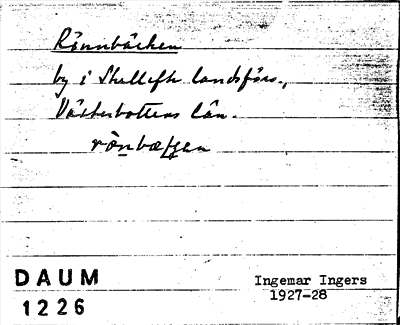 Rönnbäcken
by i Skellefte landsförs.,
Västerbottens län.
DAUM
1226
Ingemar Ingers
1927-28